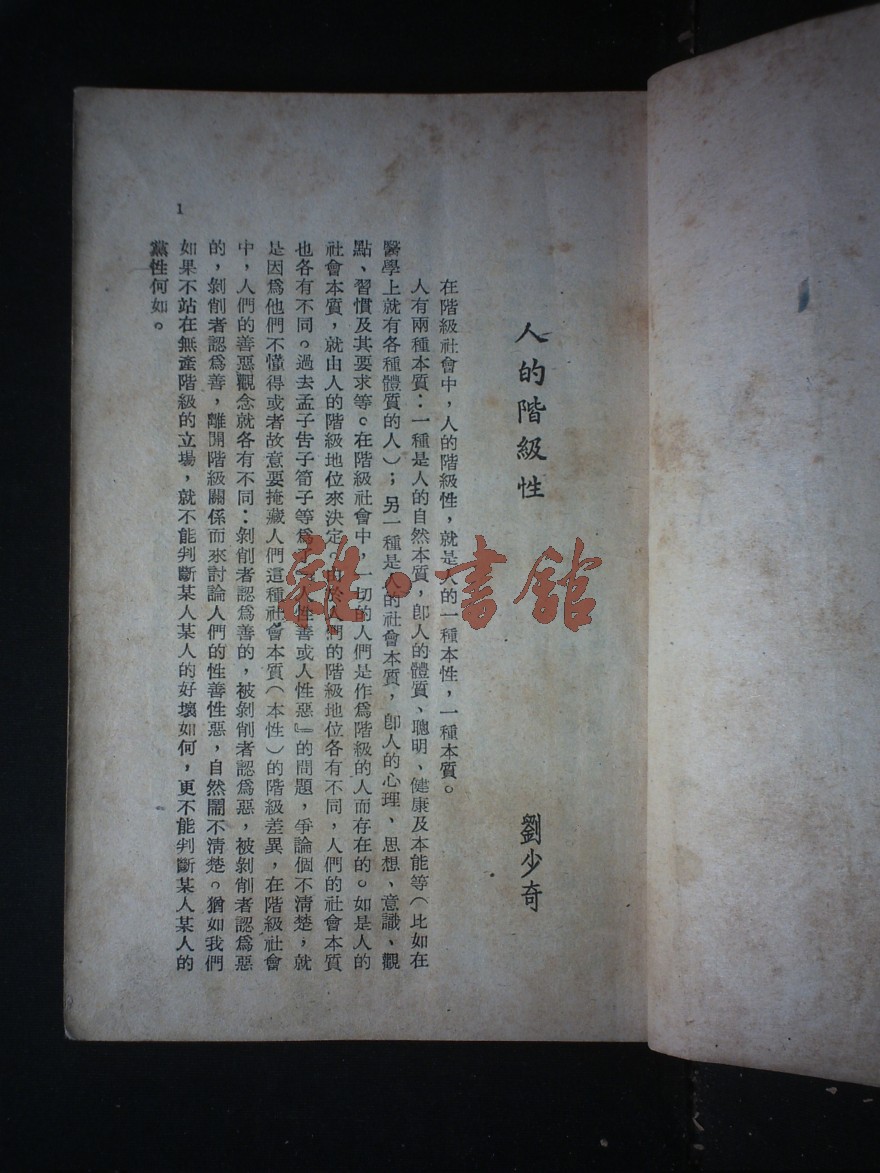 人的階級性
劉少奇
在階級社會中，人的階級性，就是人的一種本性，一種本質。
人有兩種本質：一種是人的自然本質，卽人的體質、聰明、健康及本能等（比如在
醫學上就有各種體質的人）；另一種是人的社會本質，卽人的心理、思想、意識、觀
點、習慣及其要求等。在階級社會中，一切的人們是作爲階級的人而存在的。如是人的
社會本質，就由人的階級地位來決定。由於人們的階級地位各有不同，人們的社會本質
也各有不同。過去孟子告子筍子等爲了『人性善或人性惡』的問題，爭論個不清楚，就
是因爲他們不懂得或者故意要掩藏人們這種社會本質（本性）的階級差異，在階級社會
中，人們的善惡觀念就各有不同：剝削者認爲善的，被剝削者認爲惡，被剝削者認爲惡
的，剝削者認爲善，離開階級關係而來討論人們的性善性惡，自然鬧不清楚。猶如我們
如果不站在無產階級的立場，就不能判斷某人某人的好壞如何，更不能判斷某人某人的
黨性何如。
1
雜·書館